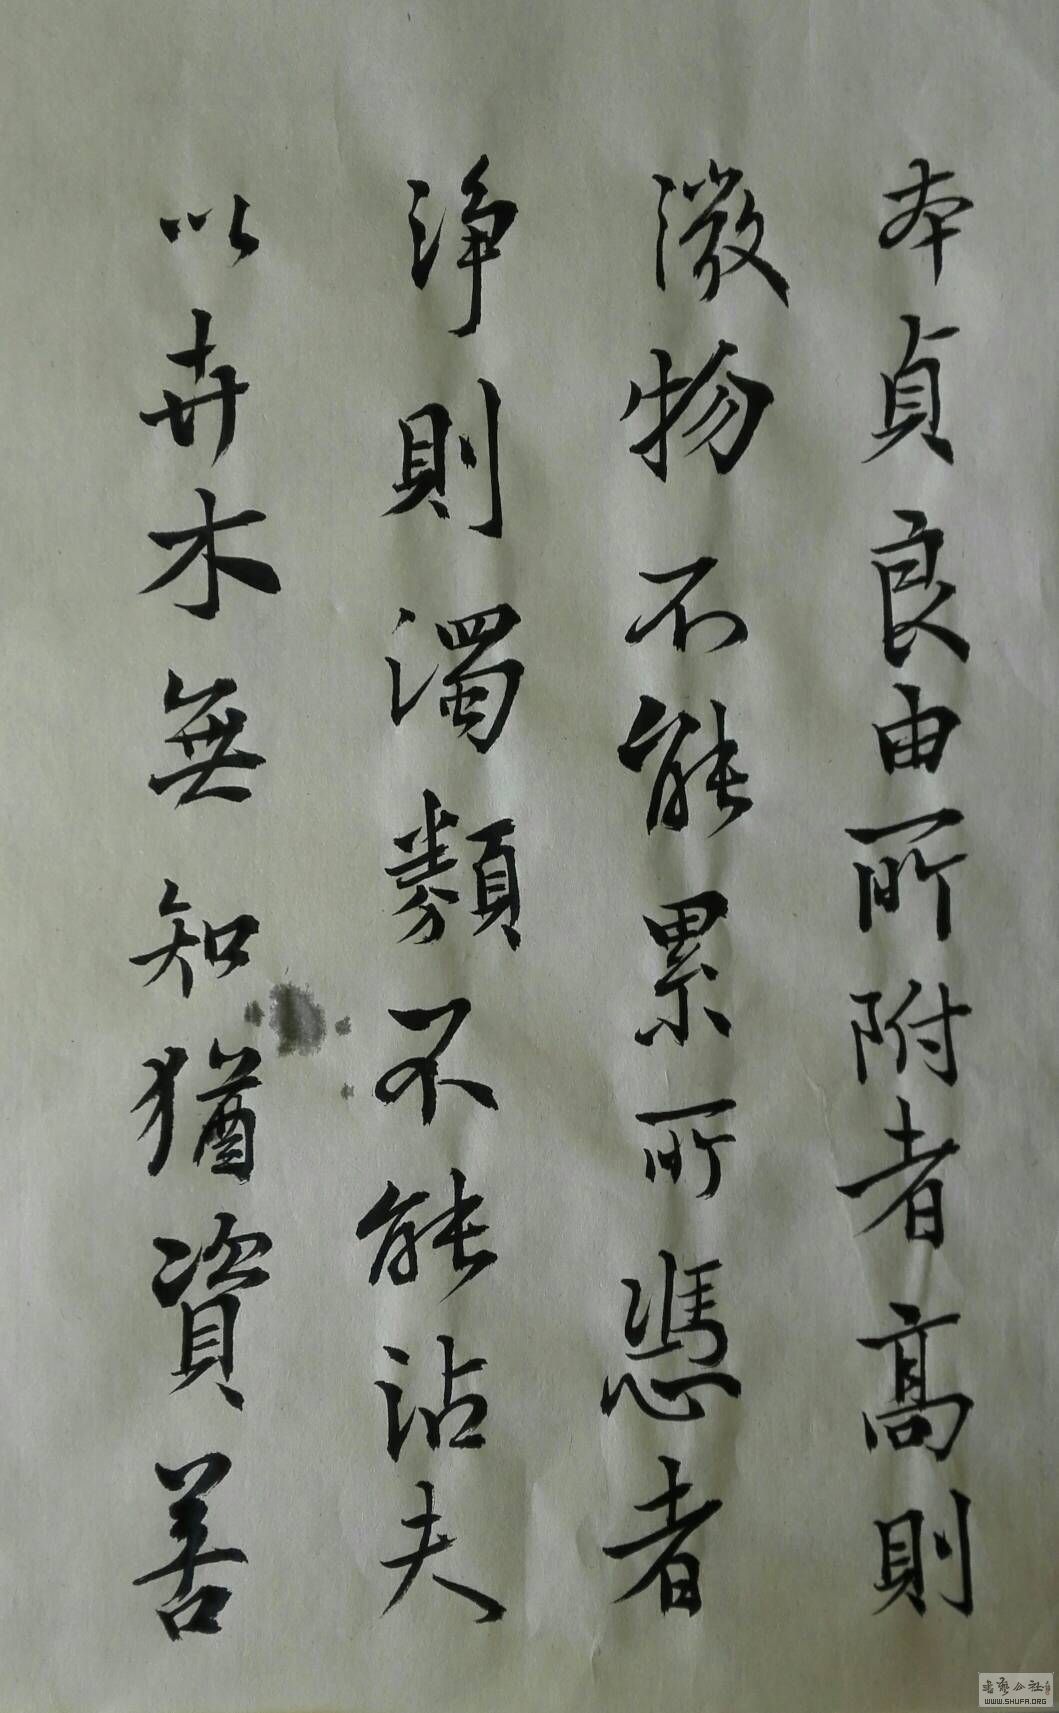 本貞良由所附者高則
微物不能累所憑者
淨則濁類不能沾夫
以卉木無知猶資善
书艺公社
WWW.SHUFA.ORG